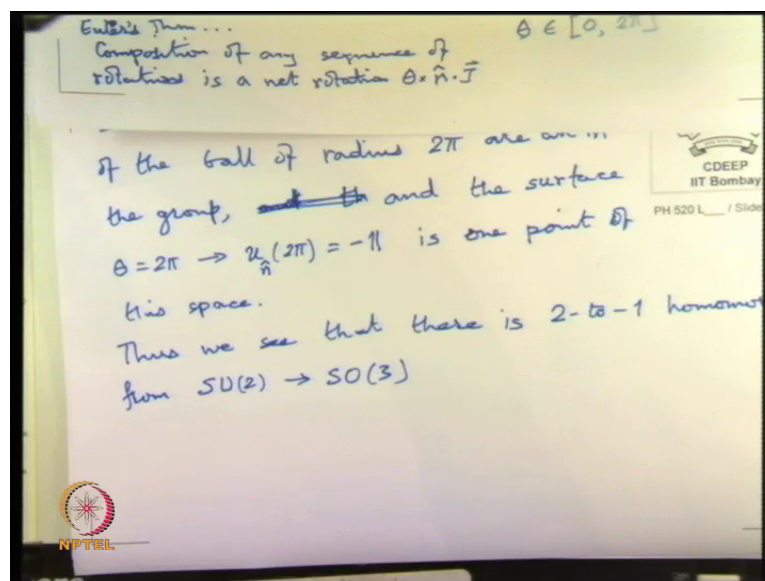 Euler's Thm...
θ ∈ [0, 2π]
Composition of any sequence of
rotations is a net rotation θ × n̂ · J⃗
of the ball of radius 2π are all in
the group, and the surface
θ = 2π → U_n̂(2π) = -1 is one point of
this space.
Thus we see that there is 2-to-1 homomor
from SU(2) → SO(3)
CDEEP
IIT Bombay
PH 520 L___ / Slide
NPTEL